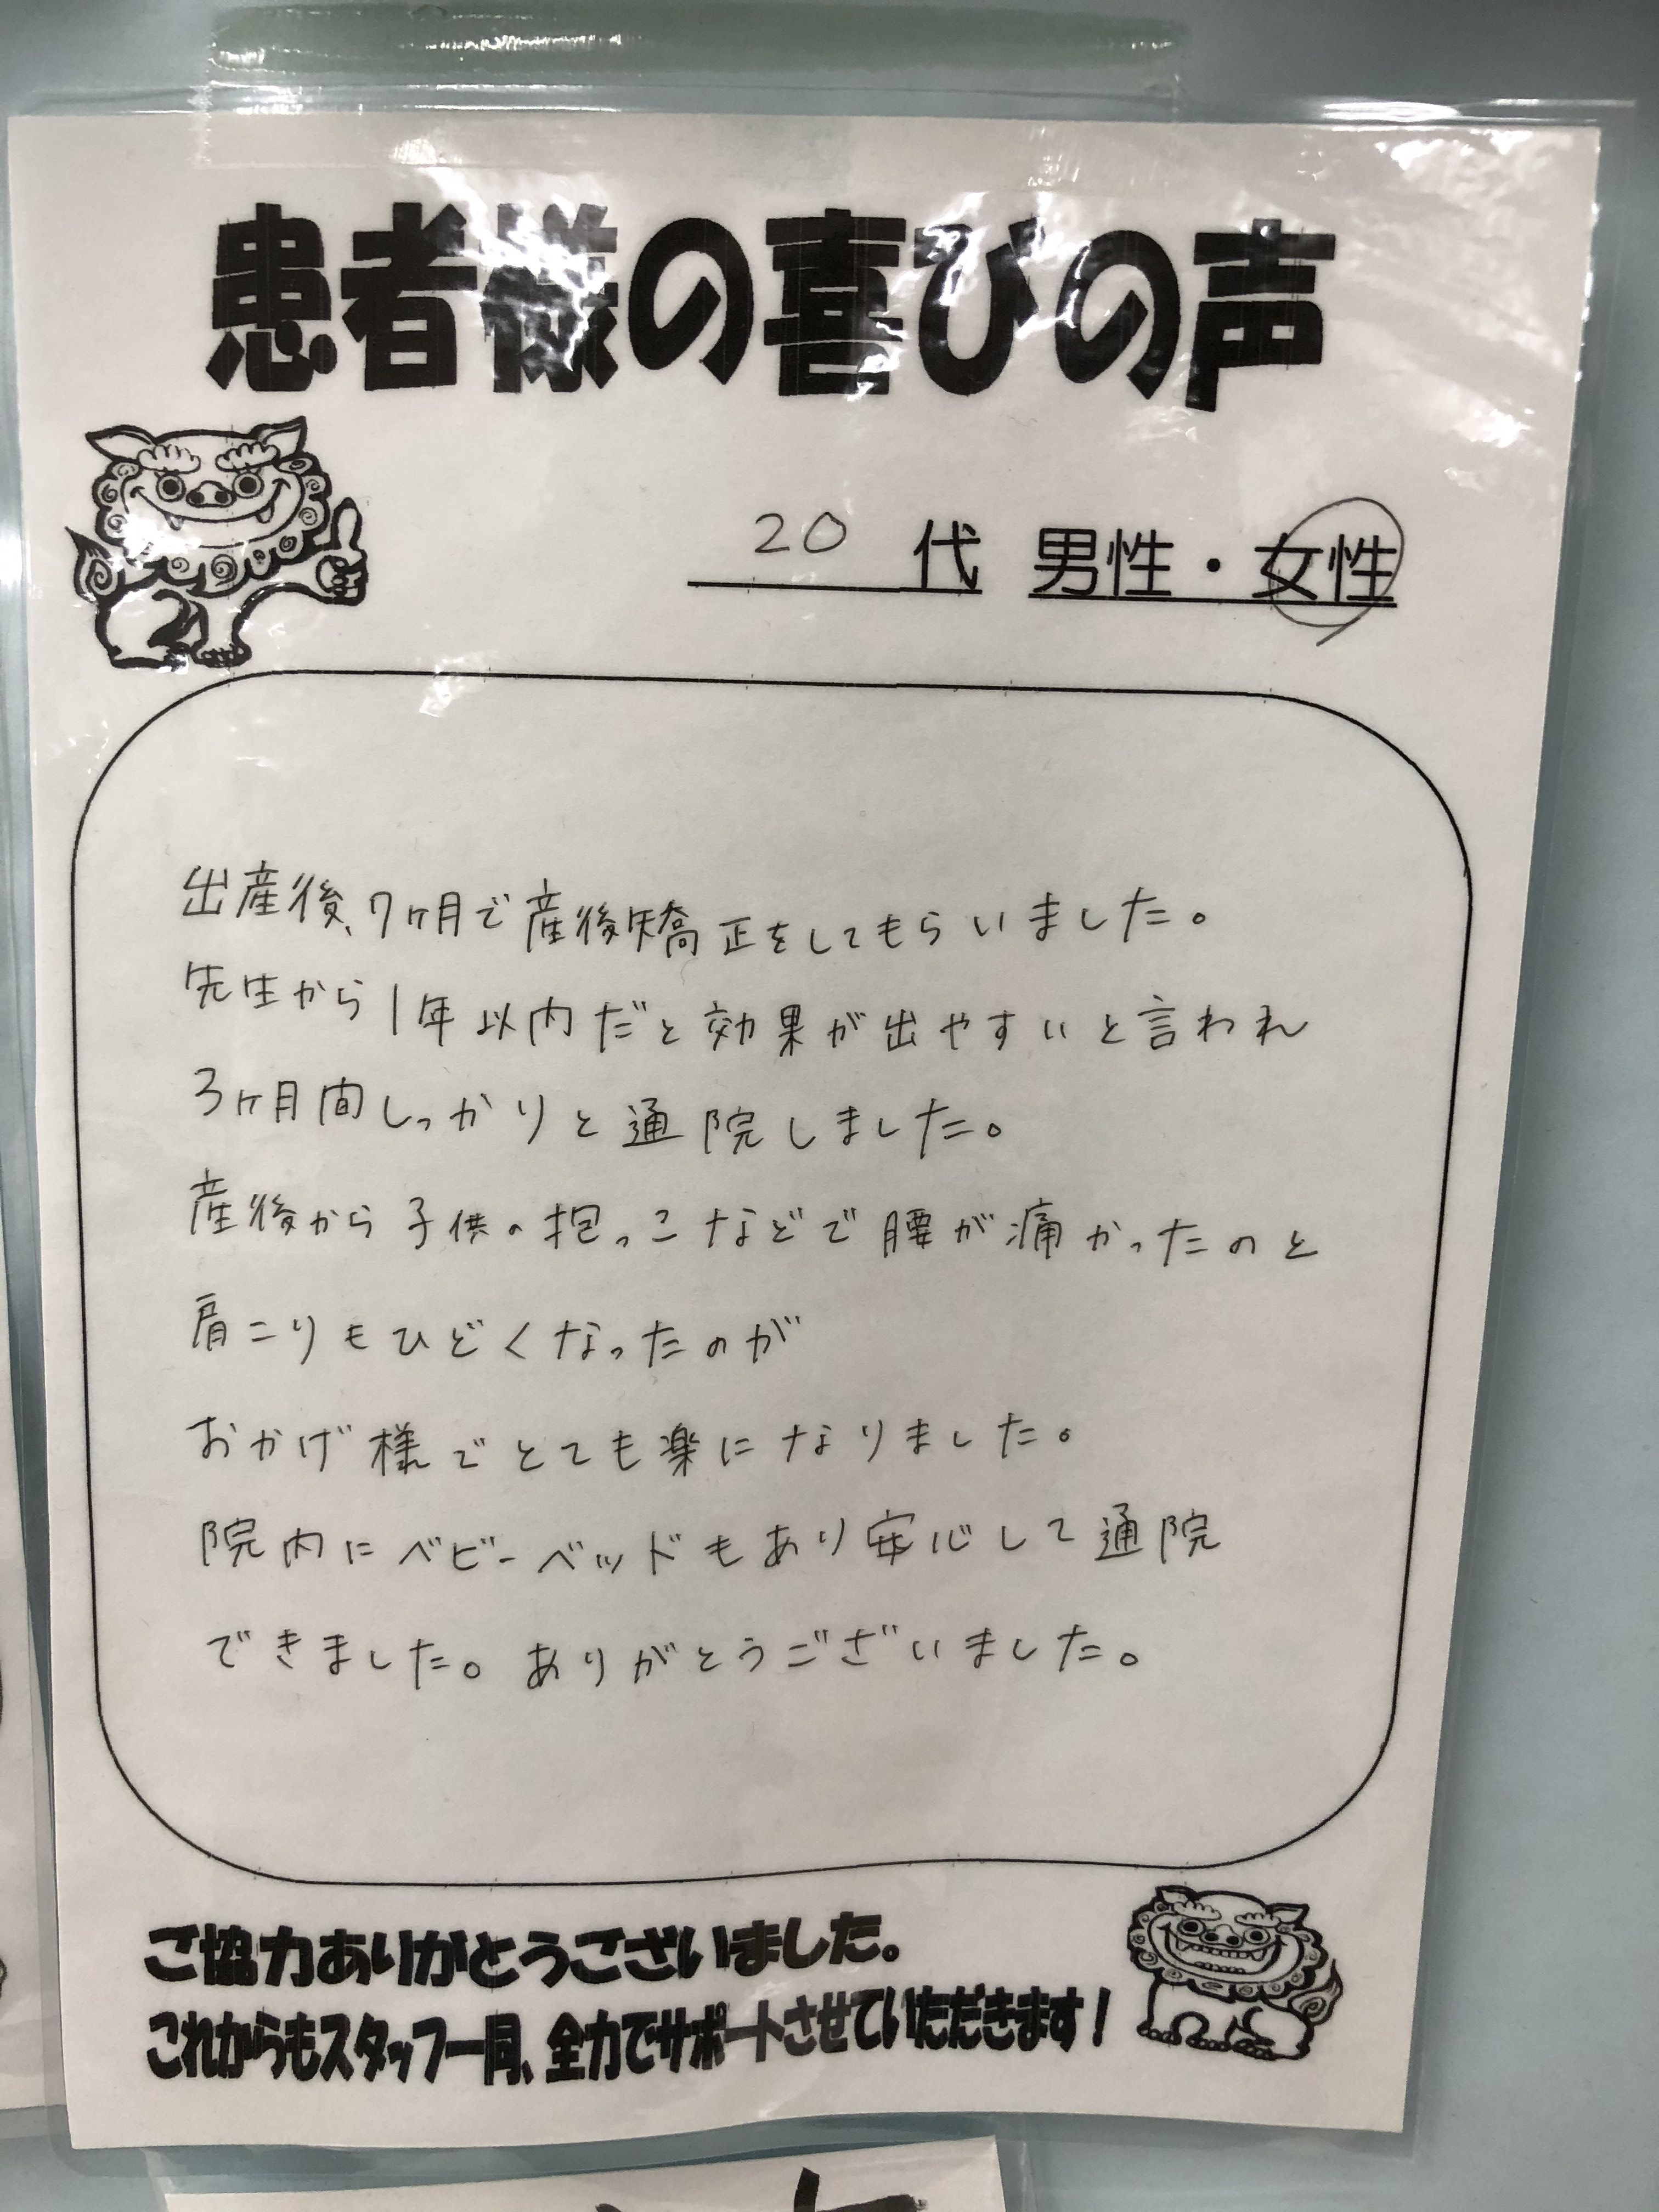 患者様の喜びの声
20 代 男性・女性
出産後、7ヶ月で産後矯正をしてもらいました。
先生から1年以内だと効果が出やすいと言われ
3ヶ月間しっかりと通院しました。
産後から子供の抱っこなどで腰が痛かったのと
肩こりもひどくなったのが
おかげ様でとても楽になりました。
院内にベビーベッドもあり安心して通院
できました。ありがとうございました。
ご協力ありがとうございました。
これからもスタッフ一同、全力でサポートさせていただきます！